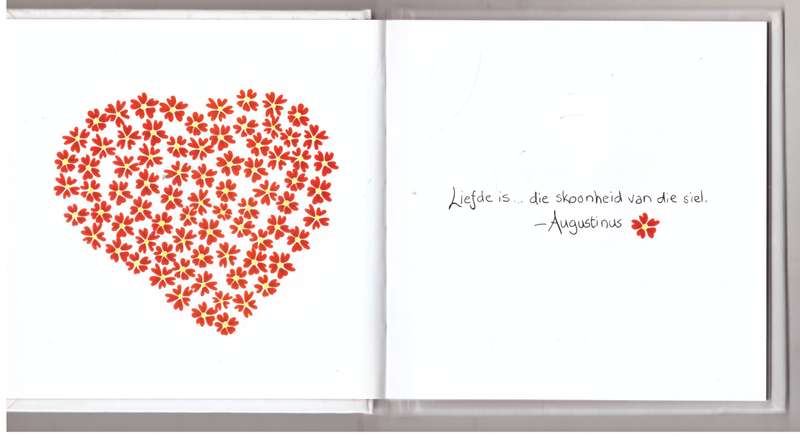 Liefde is... die skoonheid van die siel.
—Augustinus